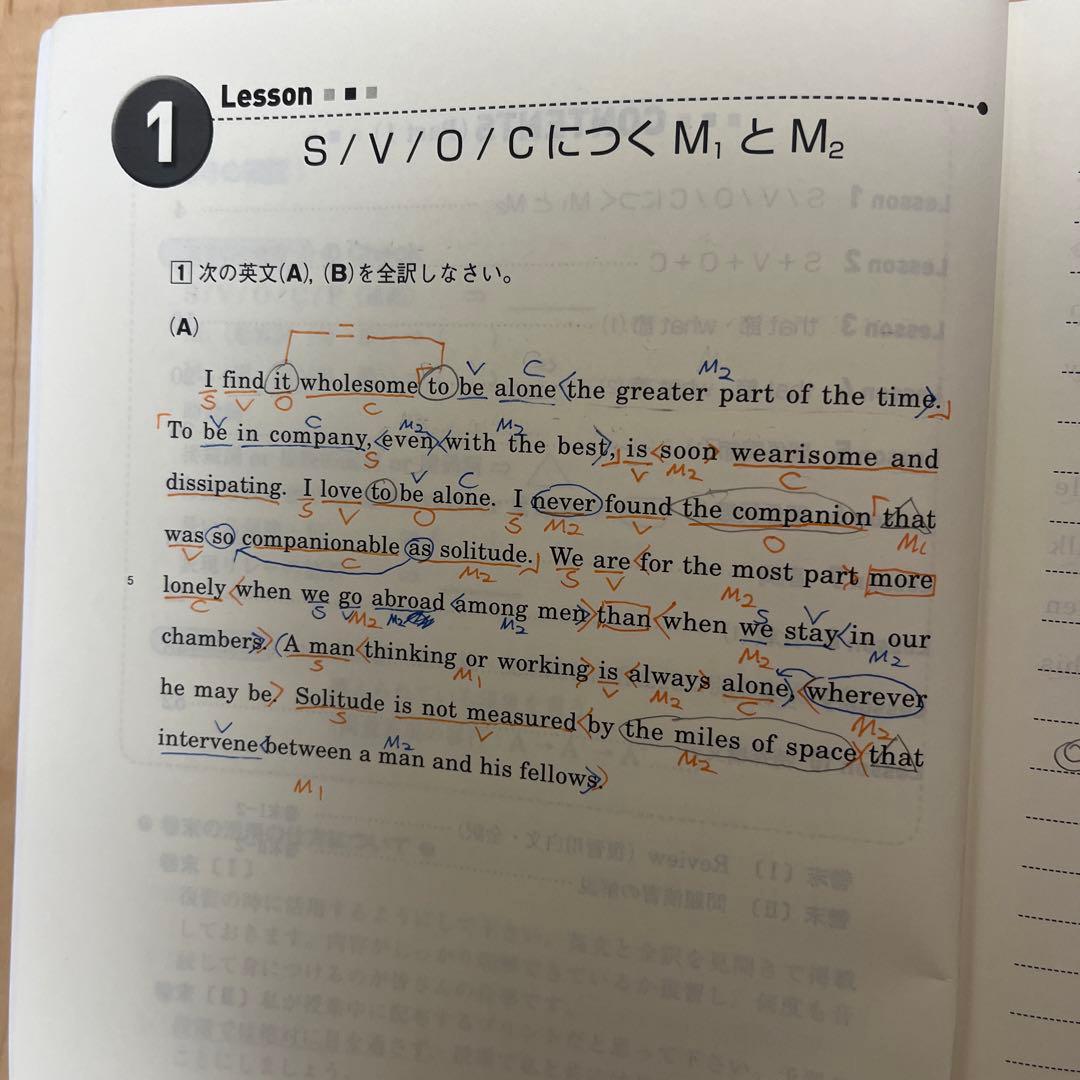 1 Lesson
S / V / O / C につく M₁ と M₂
1 次の英文(A), (B)を全訳しなさい。
(A)
=
V C M₂
I find it wholesome to be alone the greater part of the time.
S V O C
V C M₂ M₂
To be in company, even with the best, is soon wearisome and
S V M₂ C
V C
dissipating. I love to be alone. I never found the companion that
S V O S M₂ V O M₁
was so companionable as solitude. We are for the most part more
V C M₂ S V M₂
5 lonely when we go abroad among men than when we stay in our
S V
C S V M₂ M₂ M₂ M₂ M₂
chambers. A man thinking or working is always alone, wherever
S M₁ V M₂ C M₂
he may be. Solitude is not measured by the miles of space that
S V M₂
V M₂
intervene between a man and his fellows.
M₁